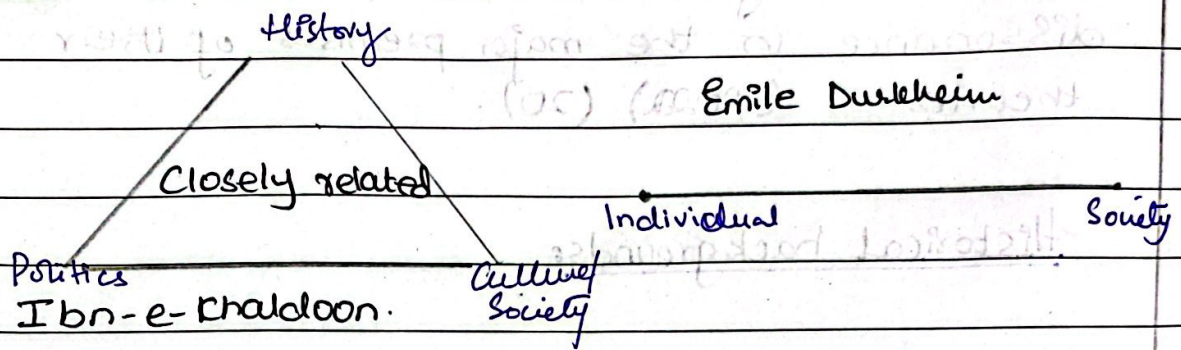 History
Emile Durkheim
Closely related
Individual
Society
Politics
Culture/
Society
Ibn-e-Khaldoon.